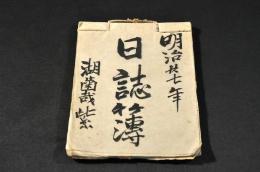 明治廿七年
日誌簿
湖南哉紫